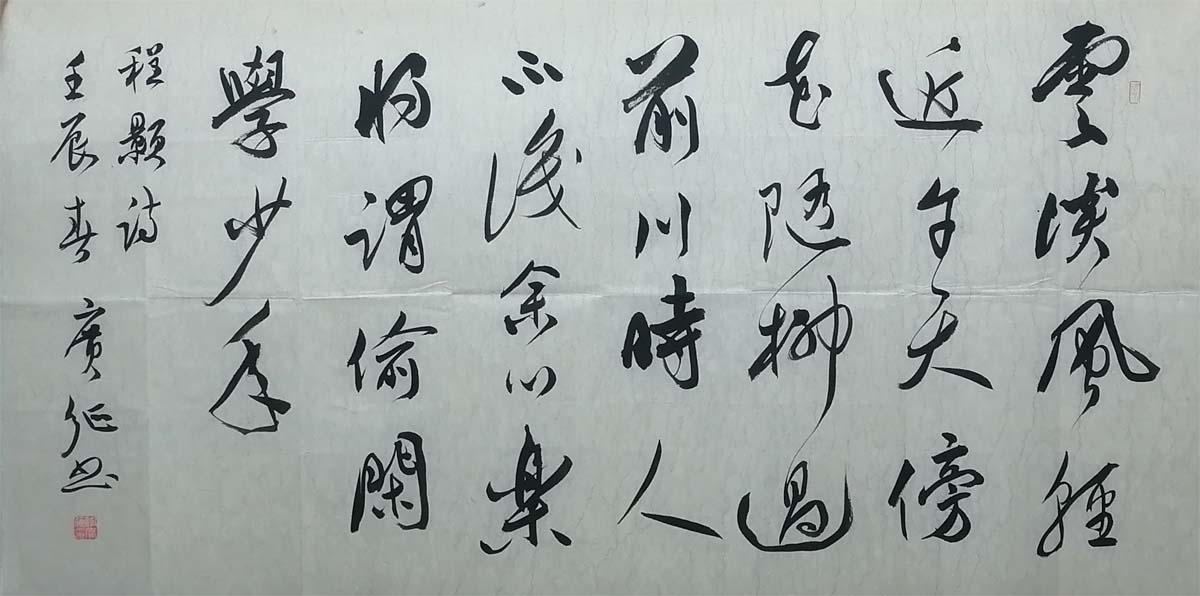 雲淡風輕
近午天傍
花隨柳過
前川時人
不識余心樂
將謂偷閑
學少年
程顥詩
壬辰春 廣征書